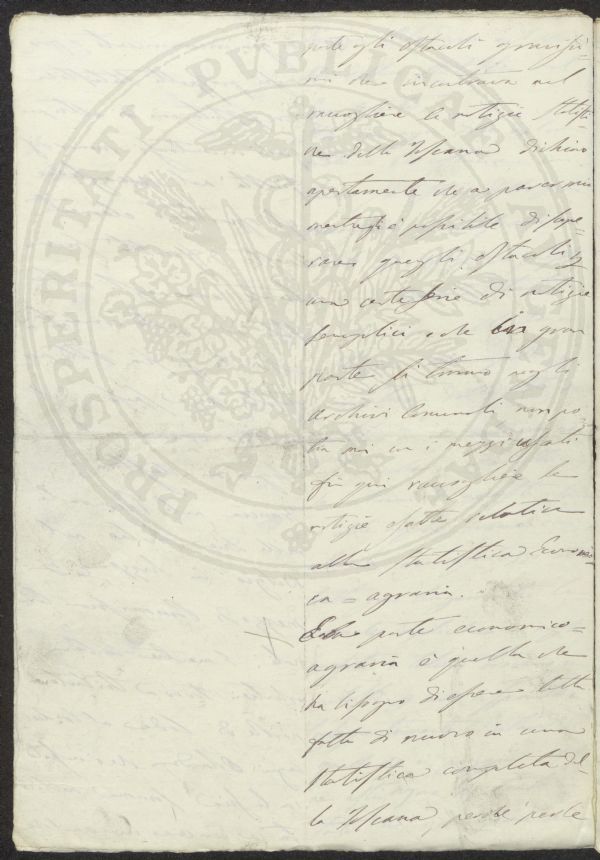 gli ostacoli gravissi-
mi che incontrava nel
raccogliere le notizie statisti-
che della Toscana dichiaro
apertamente che a parer mio
è possibile di supe-
rare quegli ostacoli
una certa serie di notizie
semplici e che in gran
parte si trovano negli
archivi Comunali non po
tra mai con i mezzi usati
fin qui raccogliere le
notizie esatte relative
alla statistica Economi
ca = agraria.
E la parte economico=
agraria è quella che
ha bisogno di essere tutta
fatta di nuovo in una
statistica completa del-
la Toscana, perchè
PROSPERITATI PVBLICAE AVGENDAE